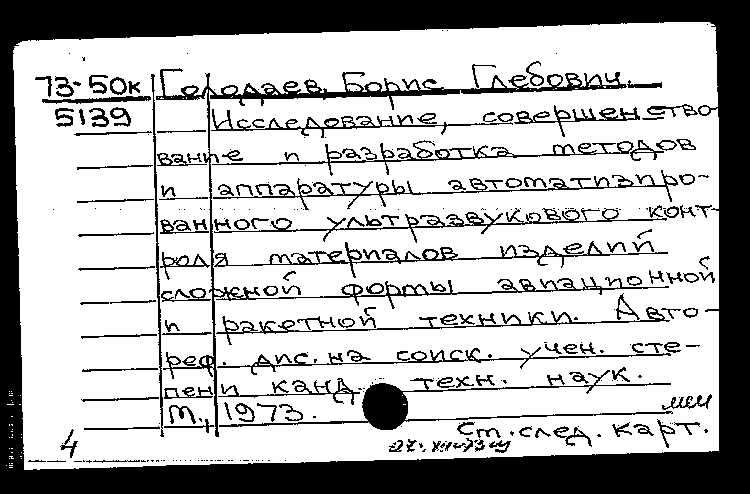 73-50к Голодаев, Борис Глебович.
5139 Исследование, совершенство-
вание и разработка методов
и аппаратуры автоматизиро-
ванного ультразвукового конт-
роля материалов изделий
сложной формы авиационной
и ракетной техники. Авто-
реф. дис. на соиск. учен. сте-
пени канд. техн. наук.
М., 1973.
См. след. карт.
4